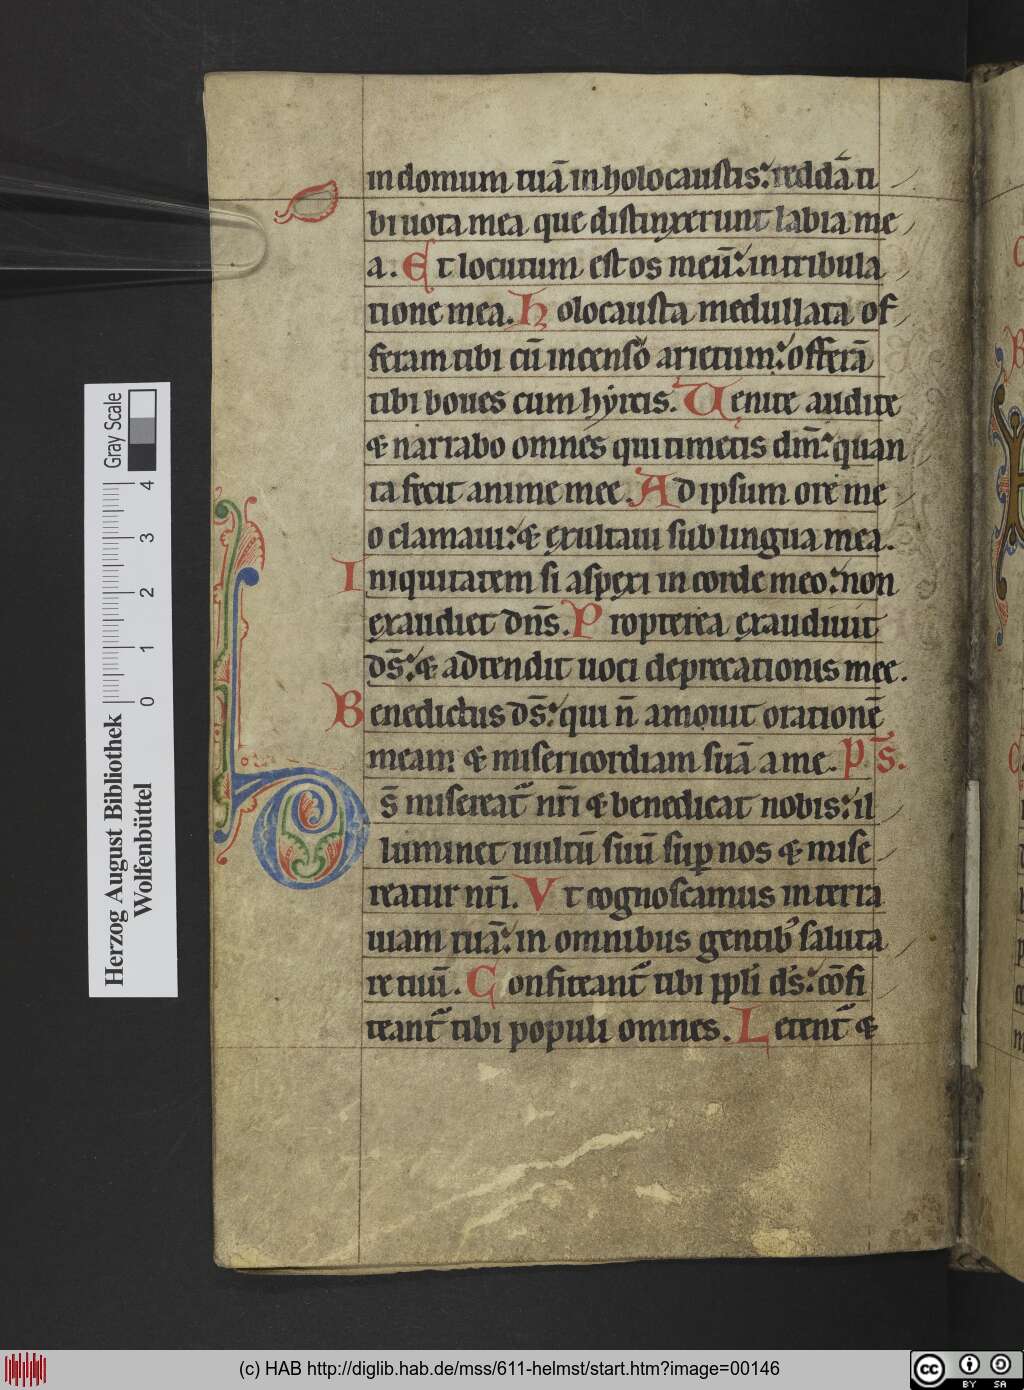 in domum tuā in holocaustis: reddā ti
bi uota mea que distinxerunt labia me
a. Et locutum est os meū: in tribula
tione mea. Holocausta medullata of
feram tibi cū incenso arietum: offerā
tibi boues cum hyrcis. Uenite audite
& narrabo omnes qui timetis dm̄: quan
ta fecit anime mee. Ad ipsum ore me
o clamaui: & exultaui sub lingua mea.
Iniquitatem si aspexi in corde meo: non
exaudiet dns̄. Propterea exaudiuit
ds̄: & adtendit uoci deprecationis mee.
Benedictus ds̄: qui n̄ amouit orationē
meam & misericordiam suā a me. ps̄.
Ds̄ misereat᷑ nr̄i & benedicat nobis: il
luminet uultū suū suꝑ nos & mise
reatur nr̄i. Vt cognoscamus in terra
uiam tuā: in omnibus gentib᷒ saluta
re tuū. Confiteant᷑ tibi ppl̄i ds̄: cōfi
teant᷑ tibi populi omnes. Letent᷑ &
Gray Scale
0 1 2 3 4
Herzog August Bibliothek
Wolfenbüttel
(c) HAB http://diglib.hab.de/mss/611-helmst/start.htm?image=00146
cc BY SA